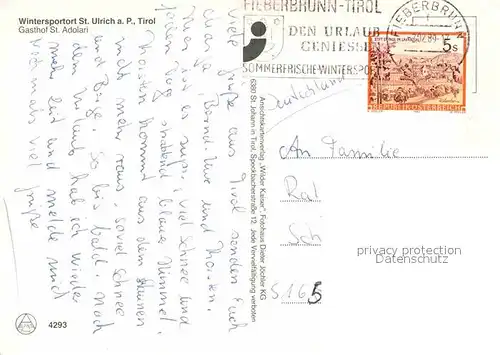 Wintersportort St. Ulrich a. P., Tirol
Gasthof St. Adolari
viele Grüße aus Tirol senden Euch
Bernd-Uwe und Thorsten.
Hier ist es super, viel Schnee und
jeden Tag strahlend blauer Himmel.
Thorsten kommt aus dem Staunen
nicht mehr raus, soviel Schnee
und Berge. So bis bald. Nach
dem Urlaub hab ich wieder
mehr Zeit und melde mich
nochmals viel Grüße
4293
Ansichtskartenverlag „Wilder Kaiser“, Fotohaus Dieter Jöchler KG
6380 St. Johann in Tirol, Speckbacherstraße 12, Jede Vervielfältigung verboten
FIEBERBRUNN-TIROL
DEN URLAUB
GENIESSEN
SOMMERFRISCHE-WINTERSPORT
FIEBERBRUNN
5s
REPUBLIK ÖSTERREICH
Deutschland
An Familie
Rat
Sch
5165
privacy protection
Datenschutz